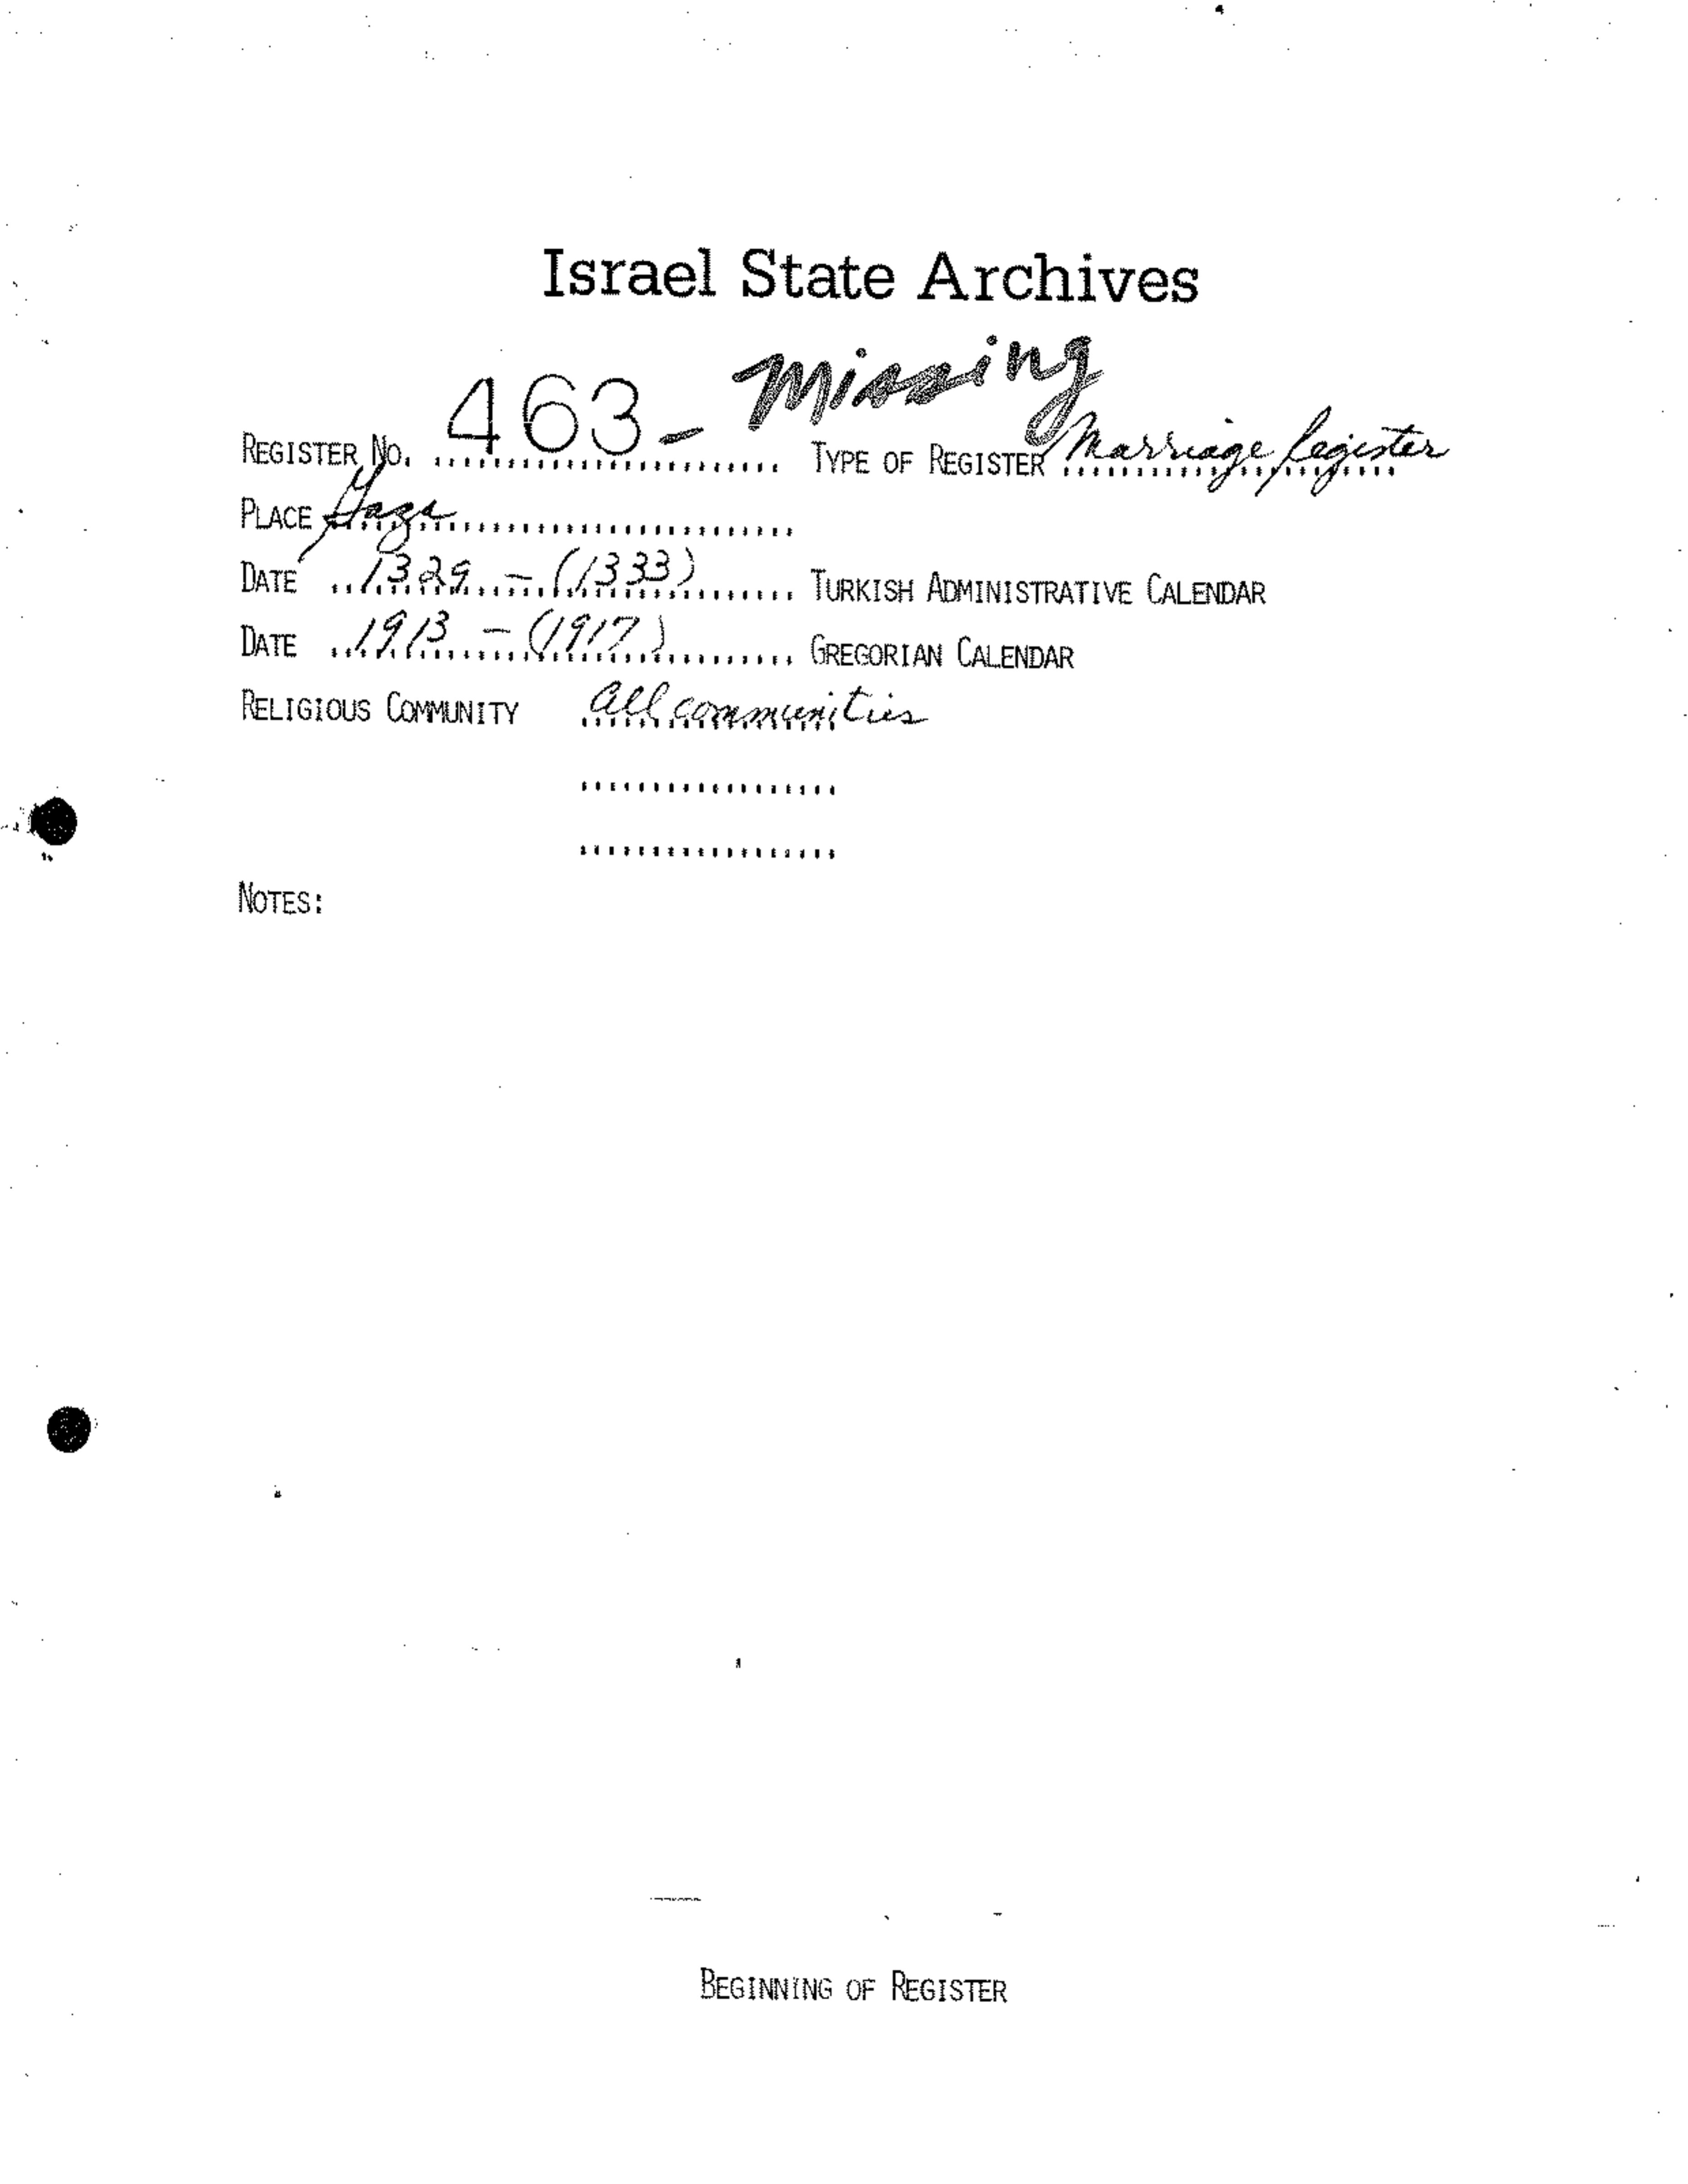 Israel State Archives
REGISTER NO. 463 - Missing TYPE OF REGISTER Marriage Register
PLACE Gaza
DATE 1329 - (1333) TURKISH ADMINISTRATIVE CALENDAR
DATE 1913 - (1917) GREGORIAN CALENDAR
RELIGIOUS COMMUNITY All communities
NOTES:
BEGINNING OF REGISTER